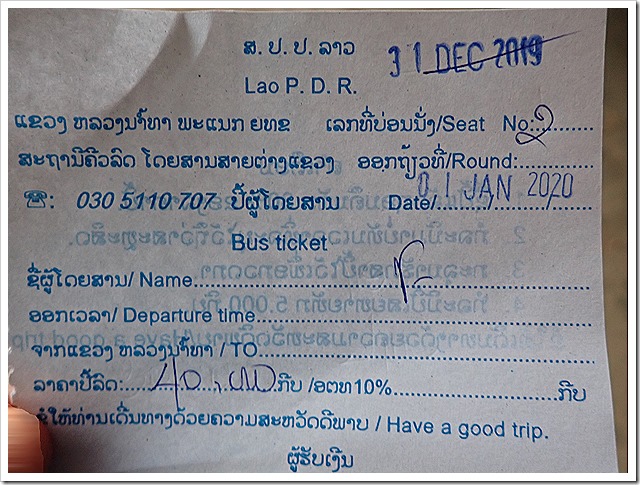 ສ. ປ. ປ. ລາວ 31 DEC 2019
Lao P. D. R.
ແຂວງ ຫລວງນ້ຳທາ ພະແນກ ຍທຂ ເລກທີ່ບ່ອນນັ່ງ/Seat No:
ສະຖານີຄິວລົດ ໂດຍສານສາຍຕ່າງແຂວງ ອອກຖ້ຽວທີ່/Round:
☎: 030 5110 707 ປີ້ຜູ້ໂດຍສານ Date/ 01 JAN 2020
Bus ticket
ຊື່ຜູ້ໂດຍສານ/ Name
ອອກເວລາ/ Departure time
ຈາກແຂວງ ຫລວງນ້ຳທາ / TO
ລາຄາປີ້ລົດ: 40,000 ກີບ /ອຕທ10% ກີບ
ຂໍໃຫ້ທ່ານເດີ່ນທາງດ້ວຍຄວາມສະຫວັດດີພາບ / Have a good trip.
ຜູ້ຮັບເງິນ